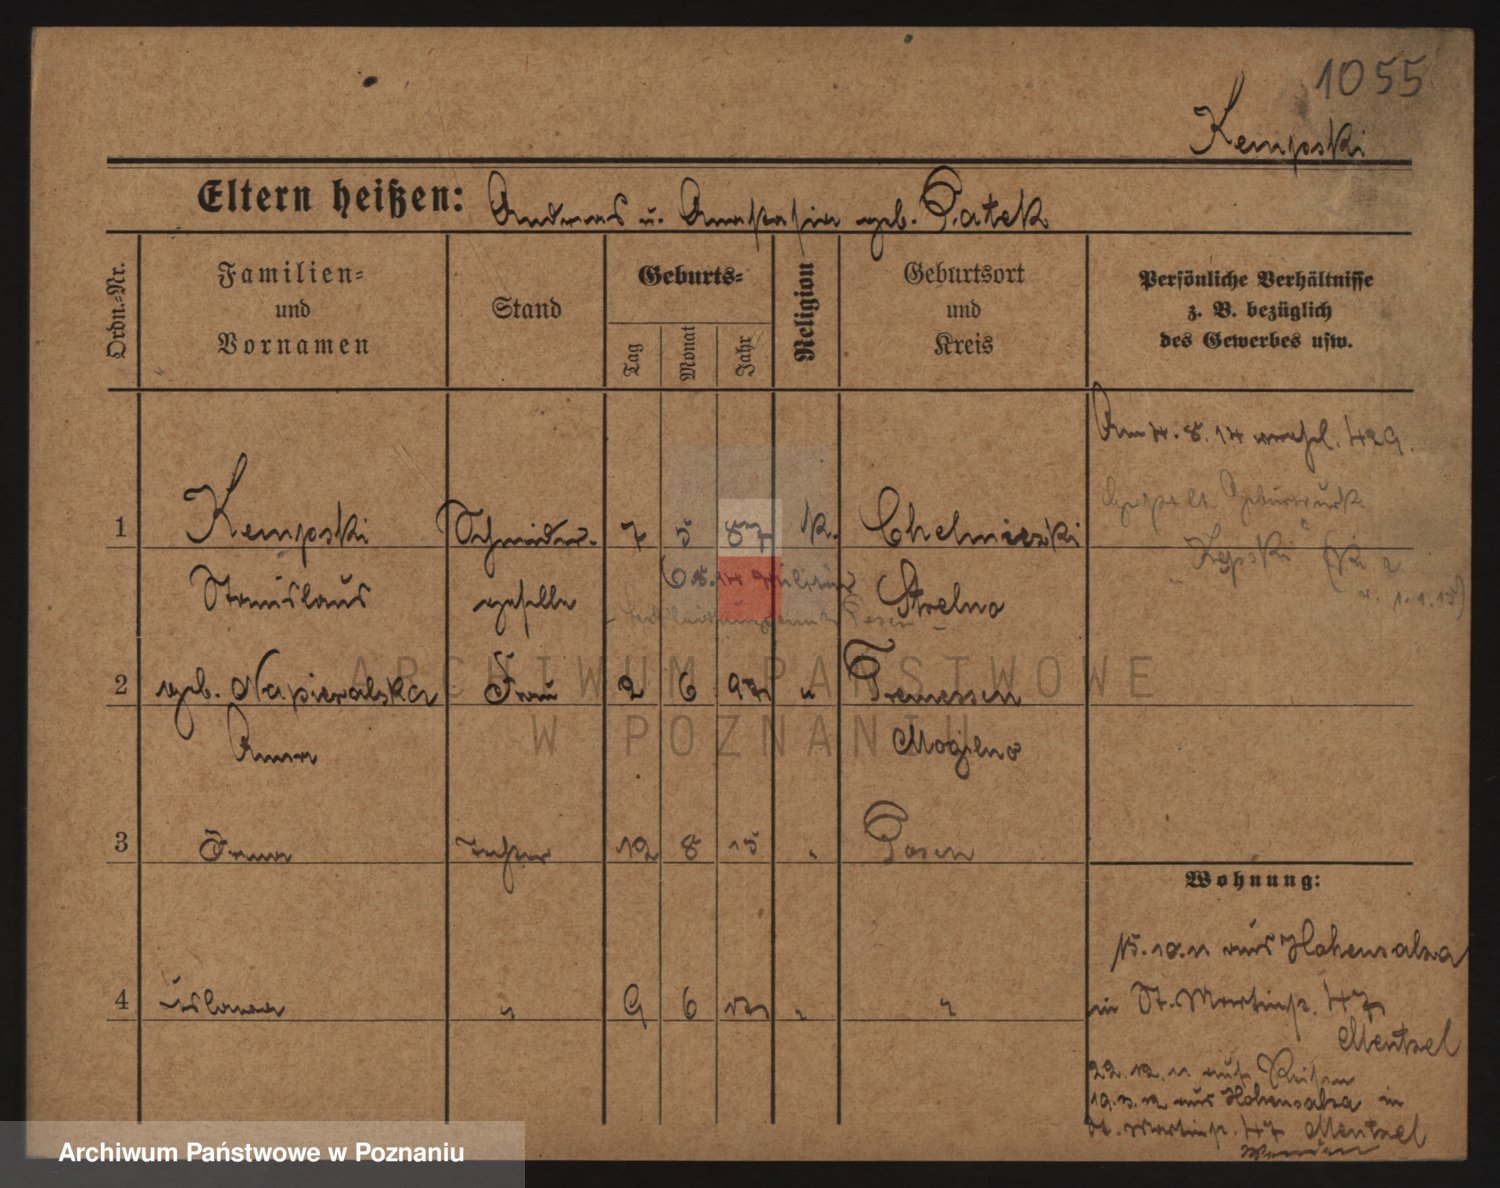 1055
Kempski
Eltern heißen: Andreas u. Anastasia geb. Patek
Ordn.=Nr.
Familien=
und
Vornamen
Stand
Geburts=
Tag
Monat
Jahr
Religion
Geburtsort
und
Kreis
Persönliche Verhältnisse
z. B. bezüglich
des Gewerbes usw.
Am 4.8.14 429.
1 Kempski Schneider- 7 5 87 k. Chelmiczki
Stanislaus geselle Strelno
"Kepski"
1.1.15)
2 geb. Napieralska Frau 2 6 " Tremessen
Anna Mogilno
3 Tochter 12 8 15 " Posen
4 " 9 6 " "
Wohnung:
15.10.11 aus Hohensalza
in St. Martinstr. 47
Mentzel
22.12.11 auf Reisen
19.3.12 aus Hohensalza in
St. Martinstr. 47 Mentzel
Wenden
ARCHIWUM PAŃSTWOWE
W POZNANIU
Archiwum Państwowe w Poznaniu